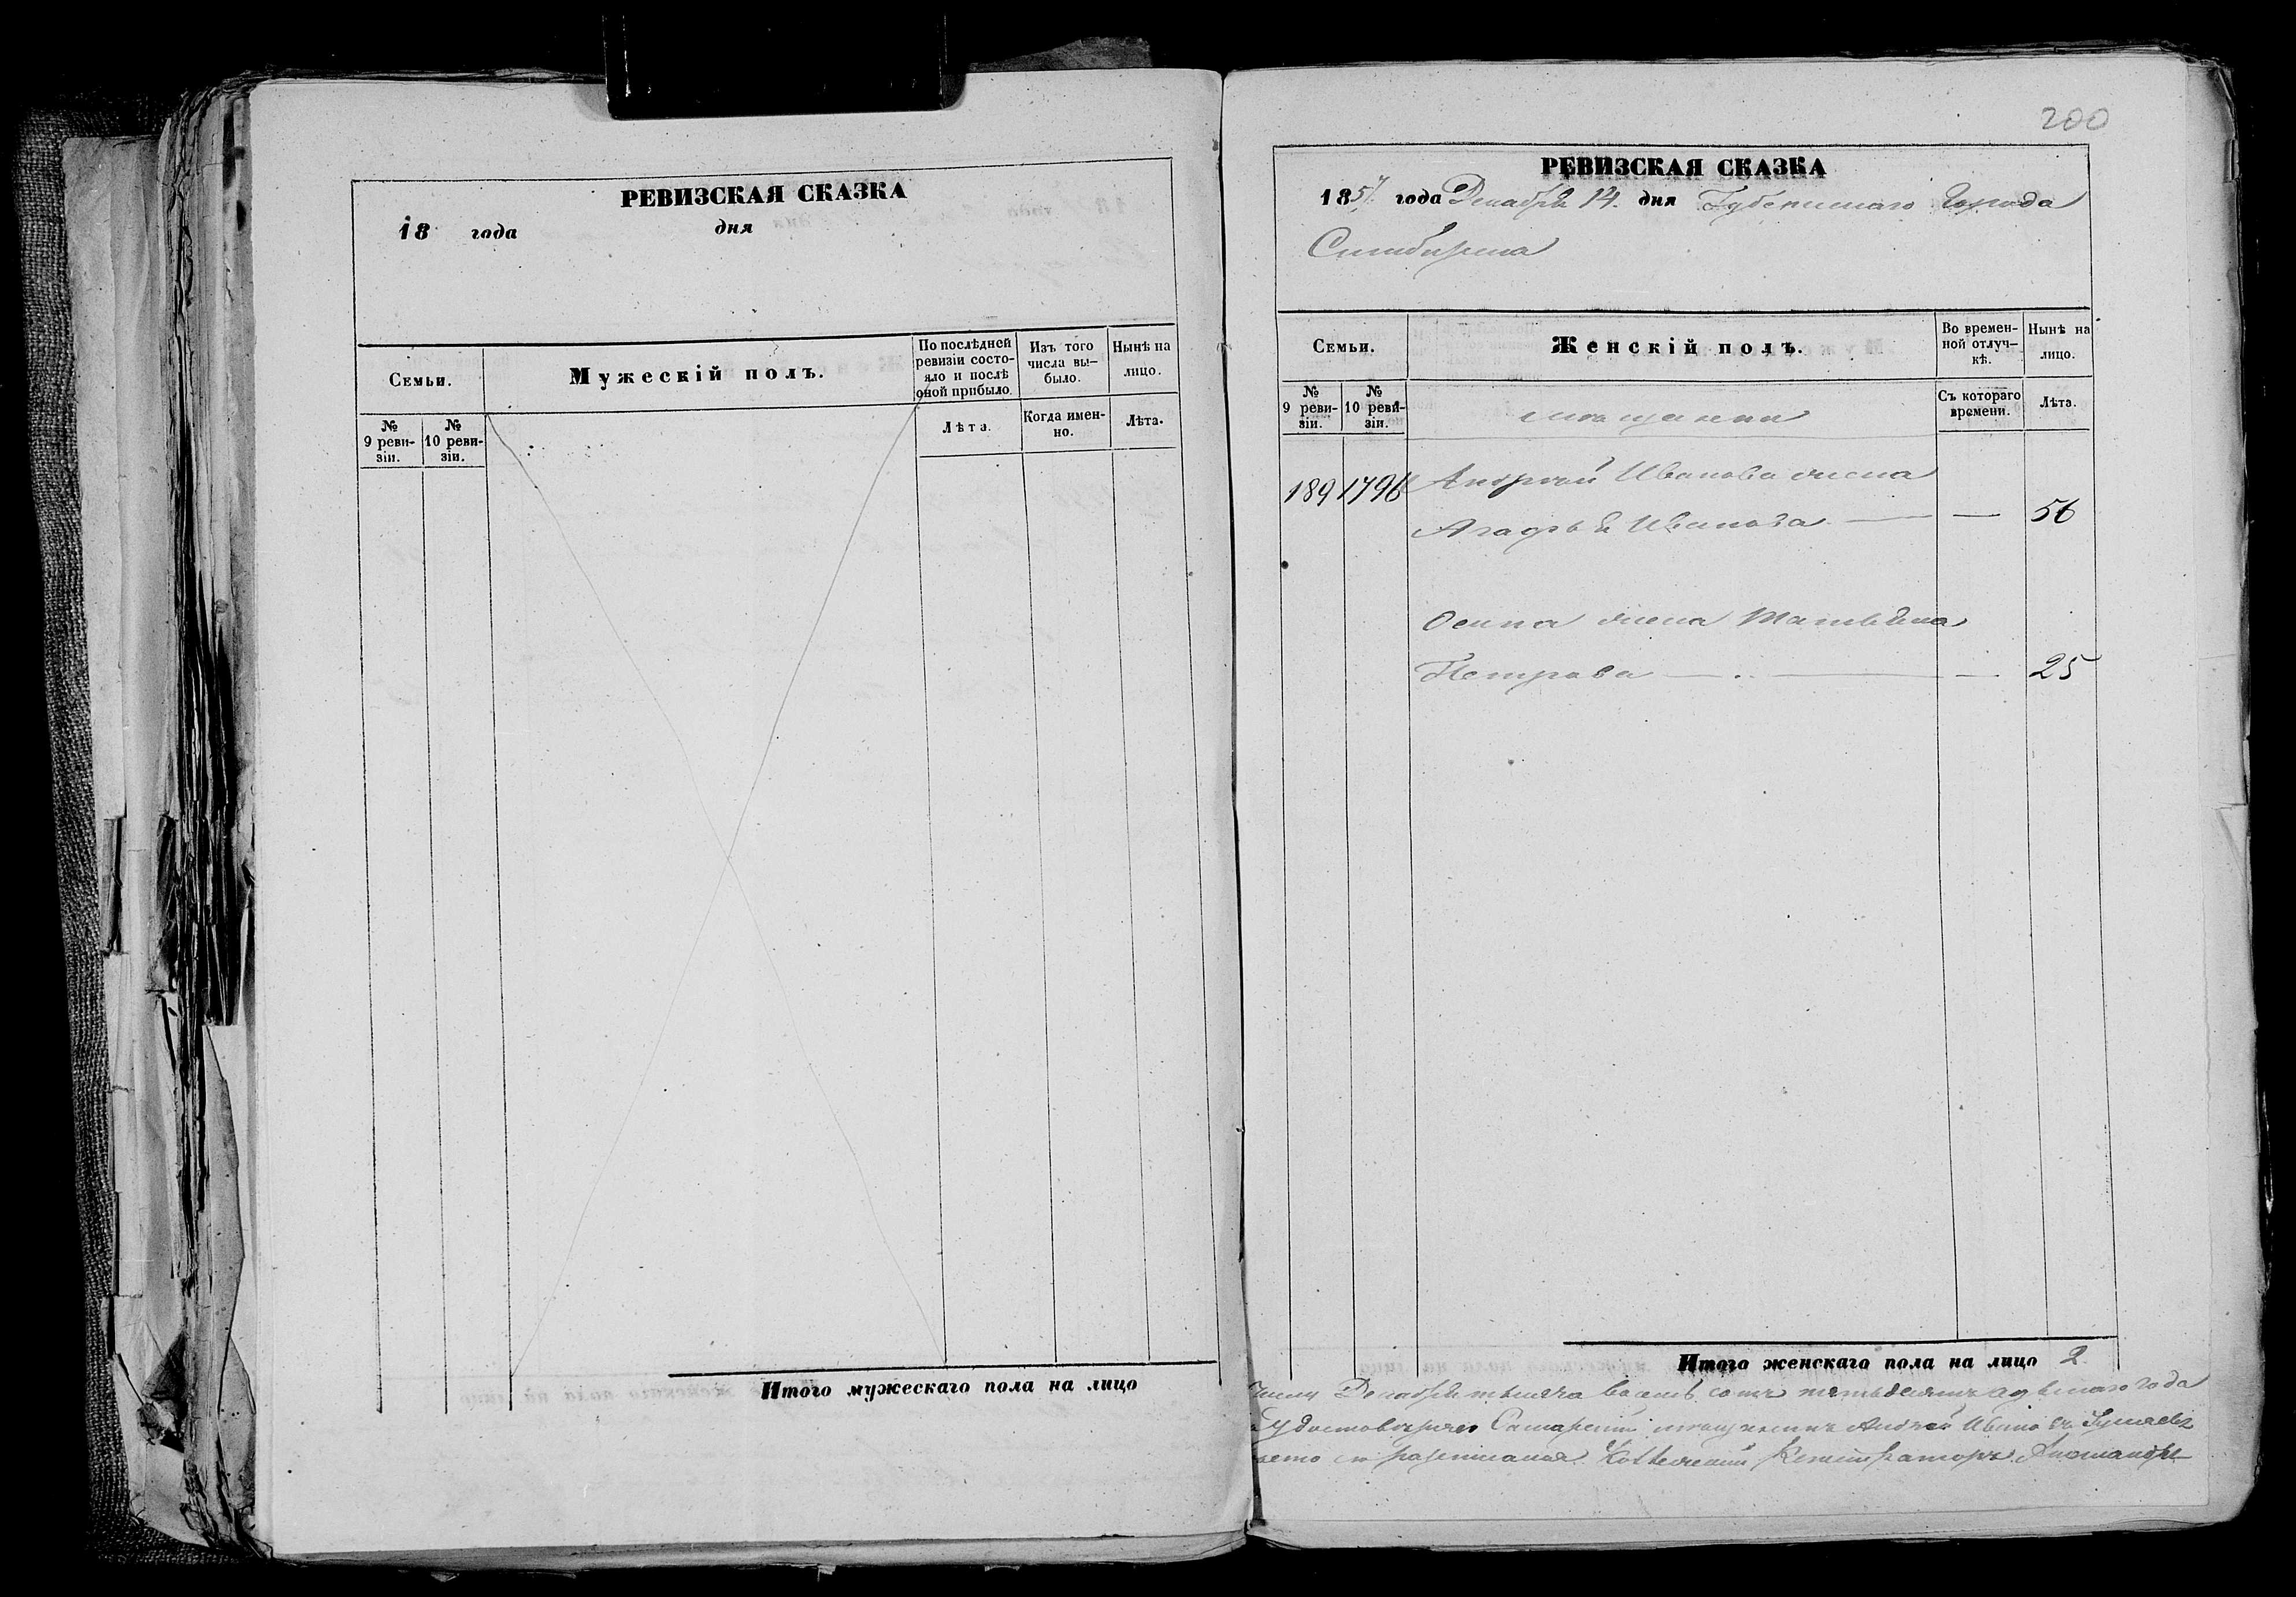 РЕВИЗСКАЯ СКАЗКА
18 года дня
Семьи.
Мужескій полъ.
По послѣдней ревизіи состояло и послѣ оной прибыло.
Изъ того числа выбыло.
Нынѣ на лицо.
№ 9 ревизіи.
№ 10 ревизіи.
Лѣта.
Когда именно.
Лѣта.
Итого мужескаго пола на лицо
200
РЕВИЗСКАЯ СКАЗКА
1857 года Декабря 14 дня Губернскаго Города
Симбирска
Семьи.
Женскій полъ.
Во временной отлучкѣ.
Нынѣ на лицо.
№ 9 ревизіи.
№ 10 ревизіи.
Съ котораго времени.
Лѣта.
мещанки
189 1796 Андрея Иванова жена
Иванова — — 56
Осипа жена Матвѣева
Петрова — — 25
Итого женскаго пола на лицо 2.
Декабря тысяча восемь сотъ пятьдесятъ года
мещанинъ Андрей
Коллежскій Регистраторъ